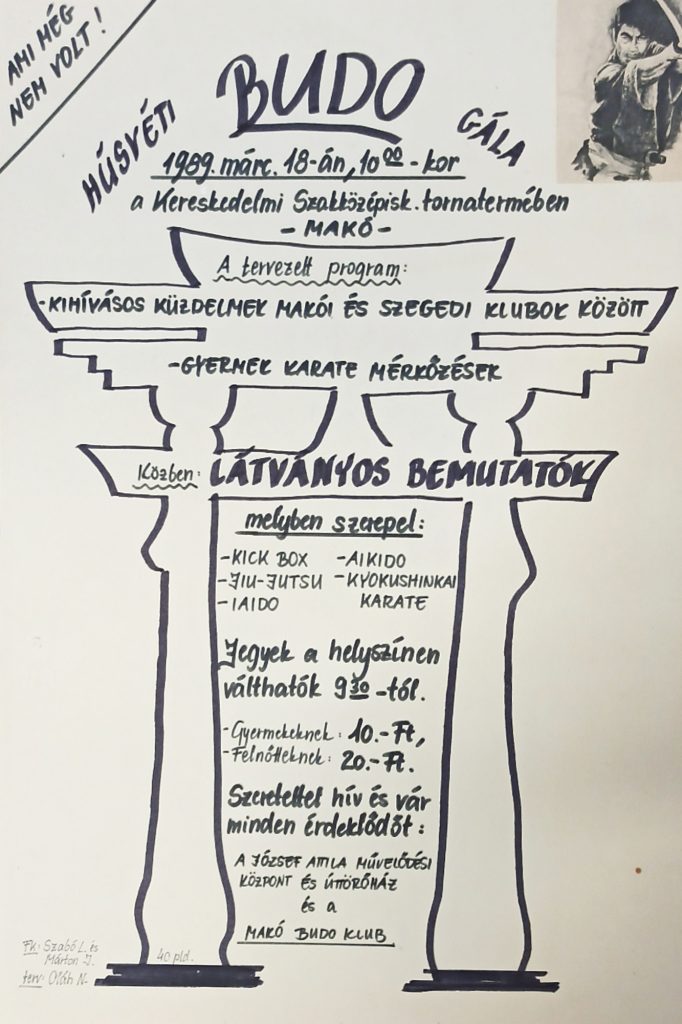 AMI MÉG
NEM VOLT!
HÚSVÉTI BUDO GÁLA
1989. márc. 18-án, 10⁰⁰-kor
a Kereskedelmi Szakközépisk. tornatermében
- MAKÓ -
A tervezett program:
-KIHÍVÁSOS KÜZDELMEK MAKÓI ÉS SZEGEDI KLUBOK KÖZÖTT
-GYERMEK KARATE MÉRKŐZÉSEK
Közben: LÁTVÁNYOS BEMUTATÓK
melyben szerepel:
-KICK BOX -AIKIDO
-JIU-JUTSU -KYOKUSHINKAI
-IAIDO KARATE
Jegyek a helyszínen
válthatók 9³⁰-tól.
-Gyermekeknek: 10.-Ft,
-Felnőtteknek: 20.-Ft.
Szeretettel hív és vár
minden érdeklődőt:
A JÓZSEF ATTILA MŰVELŐDÉSI
KÖZPONT ÉS ÚTTÖRŐHÁZ
és a
MAKÓ BUDO KLUB
Fk: Szabó L. és
Márton J.
40 pld.
terv: Oláh N.